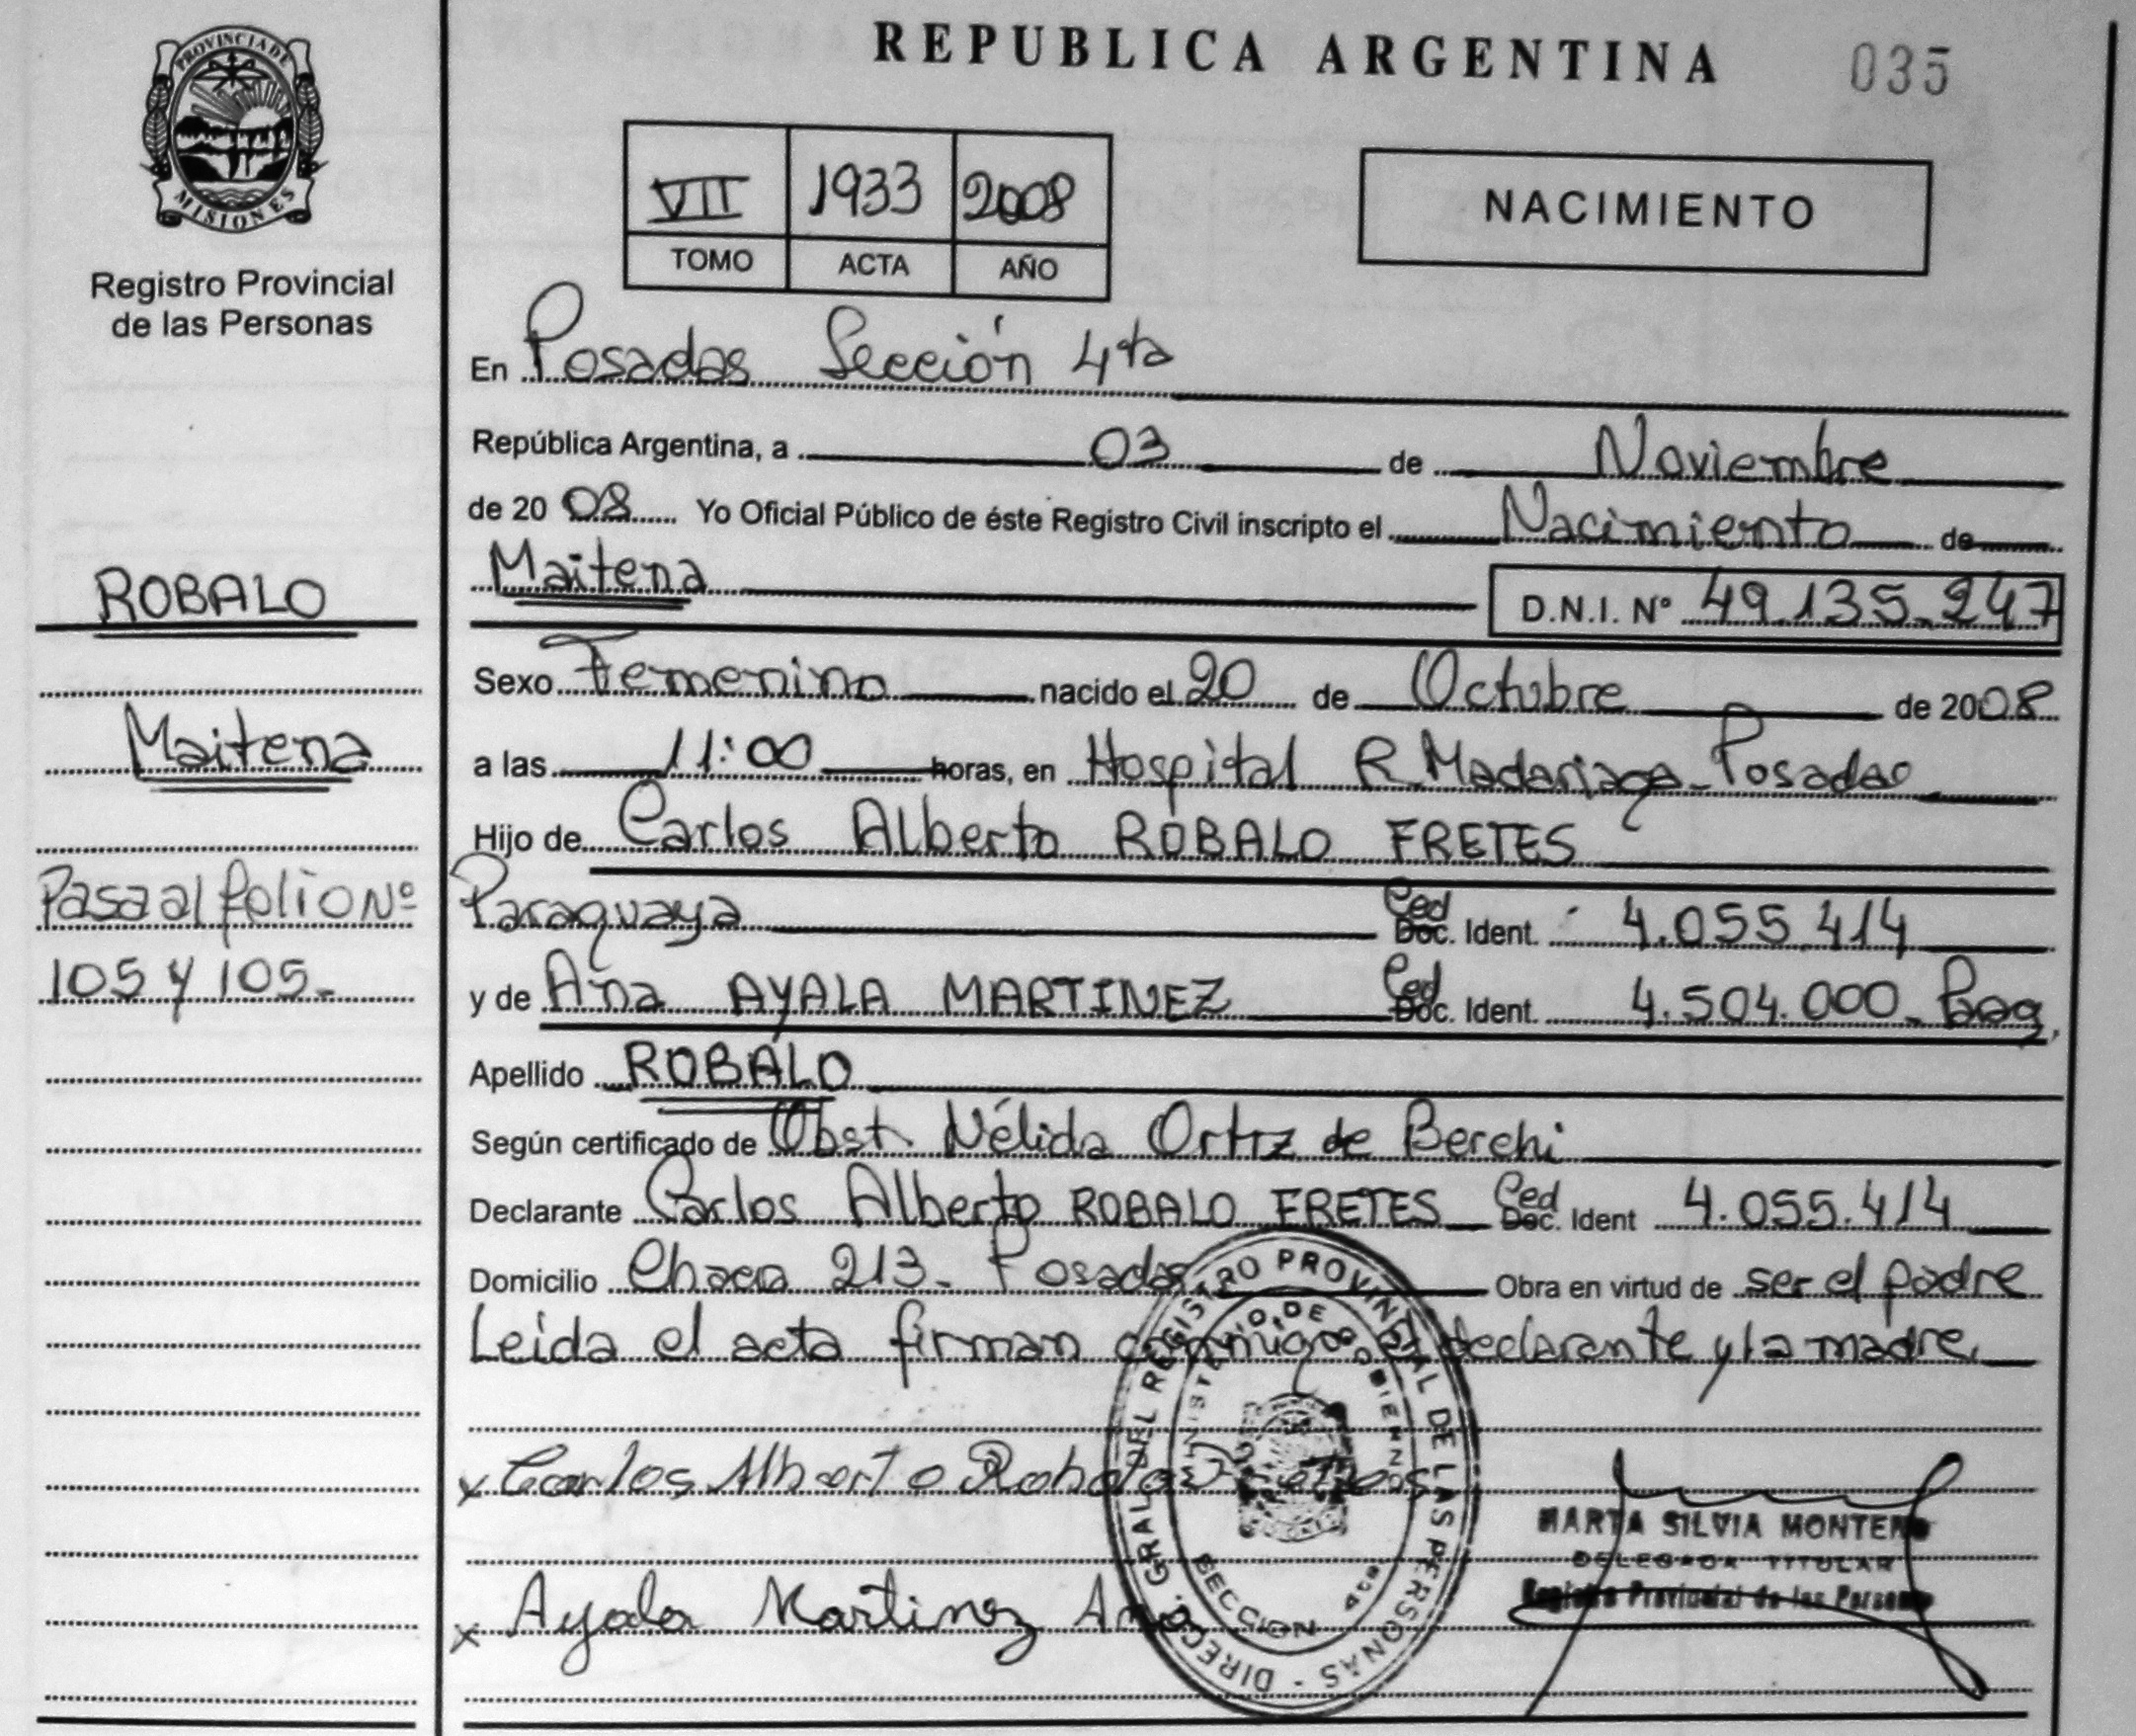 PROVINCIA DE
MISIONES
Registro Provincial
de las Personas
ROBALO
Maitena
Pasa al folio Nº
105 y 105.-
REPUBLICA ARGENTINA 035
VII 1933 2008
TOMO ACTA AÑO
NACIMIENTO
En Posadas Sección 4ta
República Argentina, a 03 de Noviembre
de 2008 Yo Oficial Público de éste Registro Civil inscripto el Nacimiento de
Maitena D.N.I. Nº 49.135.247
Sexo Femenino nacido el 20 de Octubre de 2008
a las 11:00 horas, en Hospital R. Madariaga - Posadas
Hijo de Carlos Alberto ROBALO FRETES
Paraguaya Ced Doc. Ident. 4.055.414
y de Ana AYALA MARTINEZ Ced Doc. Ident. 4.504.000 -
Apellido ROBALO
Según certificado de Obst. Nélida Ortiz de Berchi
Declarante Carlos Alberto ROBALO FRETES Ced Doc. Ident 4.055.414
Domicilio Chaca 213 - Posadas Obra en virtud de ser el padre
Leida el acta firman conmigo el declarante y la madre.
x Carlos Alberto Robalo Fretes
x Ayala Martinez Ana
DIRECC. GRAL. DEL REGISTRO PROVINCIAL DE LAS PERSONAS -
MINISTERIO DE GOBIERNO
SECCION 4ta
MARTA SILVIA MONTERO
DELEGADA TITULAR
Registro Provincial de las Personas